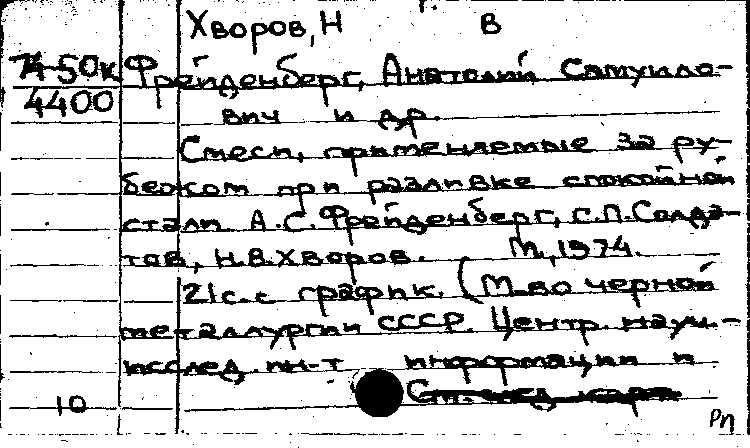 Хворов, Н В
74-50к
4400
Фрейденберг, Анатолий Самуило-
вич и др.
Смеси, применяемые за ру-
бежом при разливке спокойной
стали А.С. Фрейденберг, С.П. Солда-
тов, Н.В. Хворов. М., 1974.
21 с. с график. (М-во черной
металлургии СССР. Центр. науч.-
исслед. ин-т информации и
См. след карт
10
Рп